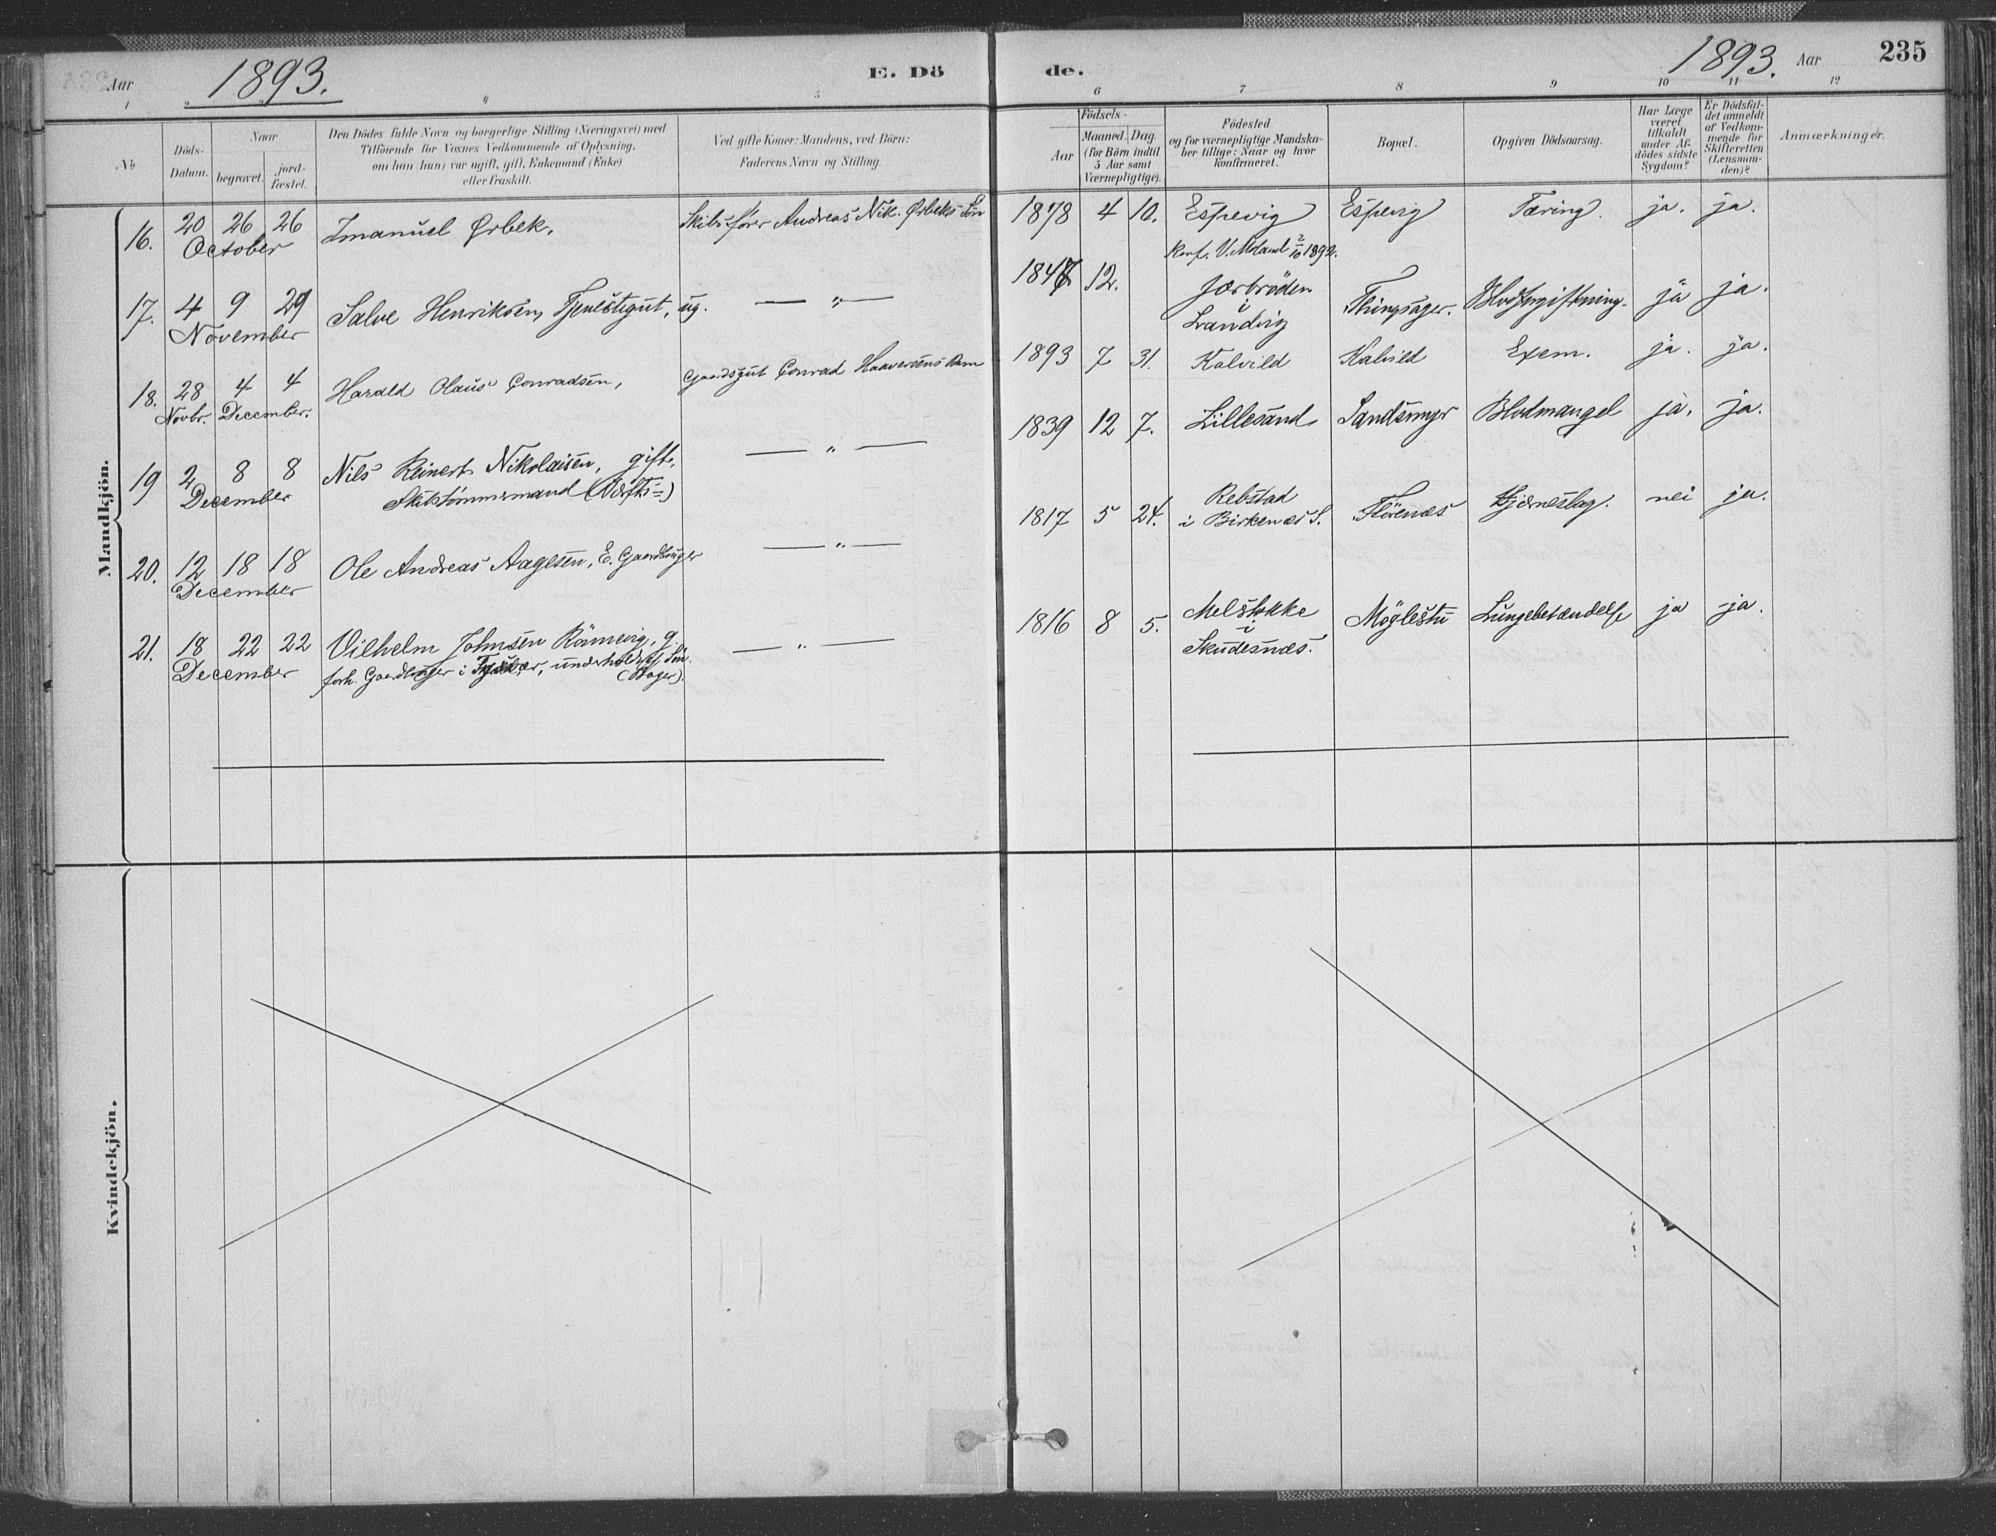 Aar 1893. E. Dö
1 2 3 4 5
No
Döds-
Datum.
Naar
begravet.
jord-
fæstet.
Den Dödes fulde Navn og borgerlige Stilling (Næringsvei) med
Tilföiende for Voxnes Vedkommende af Oplysning,
om han (hun) var ugift, gift, Enkemand (Enke)
eller fraskilt.
Ved gifte Koner: Mandens, ved Börn:
Faderens Navn og Stilling.
Mandkjön.
16. 20 26 26 Imanuel Ørbek. Skibsfører Andreas Nik. Ørbeks Sön
October
17. 4 9 29 Salve Henriksen, Tjenestegut, ug. — " —
November
18. 28 4 4 Harald Olaus Conradsen, Gaardsgut Conrad Haaversens Barn
Novbr. December.
19 2 8 8 Nils Reinert Nikolaisen, gift, — " —
December Skibstömmermand
20. 12 18 18 Ole Andreas Aagesen, E. Gaardbruger — " —
December
21. 18 22 22 Vilhelm Johnsen Rämevig, g. — " —
December forh. Gaardbruger i underholdt af Sön
Kvindekjön.
de. 1893. Aar 235
6 7 8 9 10 11 12
Födsels-
Aar
Maaned. Dag.
(for Börn indtil
5 Aar samt
Værnepligtige).
Födested
og for værnepligtige Mandska-
ber tillige: Naar og hvor
konfirmeret.
Bopæl.
Opgiven Dödsaarsag.
Har Læge
været
tilkaldt
under Af-
dödes sidste
Sygdom?
Er Dödsfal-
det anmeldt
af Vedkom-
mende for
Skifteretten
(Lensman-
den)?
Anmærkninger.
1878 4 10. Espevig Espevig Tæring. ja. ja.
Konf. V. Moland 2/10 1892.
1847 12. Jærbröden Thingsager. Blodforgiftning. ja ja.
i
Landvig
1893 7 31. Kalvild Kalvild Exem. ja. ja.
1839 12 7. Lillesand Sandsmyr Blodmangel ja. ja.
Rebstad
1817 5 24. i Birkenæs S. Flörenæs Hjerneslag. nei ja.
1816 8 5. Melstokke Möglestu Lungebetændelse ja ja.
i
Skudesnæs.